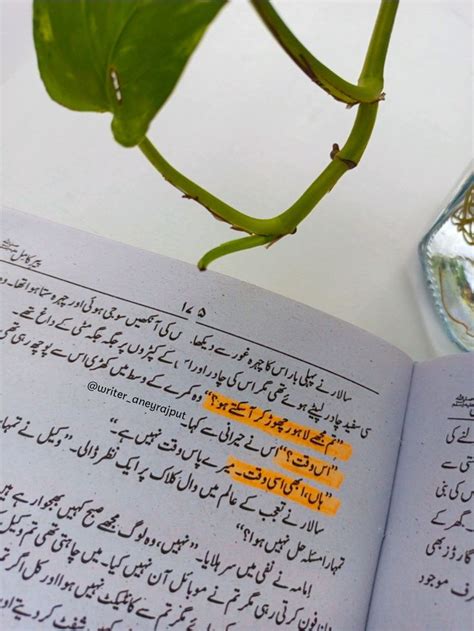 پیرِ کاملﷺ
۱۷۵
سالار نے پہلی بار اس کا چہرہ غور سے دیکھا۔ اس کی آنکھیں سوجی ہوئی اور چہرہ ستا ہوا تھا۔ وہ
سفید چادر لپیٹے ہوئے تھی مگر اس کی چادر اور اس کے کپڑوں پر جگہ جگہ مٹی کے داغ تھے۔
@writer_aneyrajput
"تم مجھے لاہور چھوڑ کر آ سکتے ہو؟" وہ کمرے کے وسط میں کھڑی اس سے پوچھ رہی تھی
"اس وقت؟" اس نے حیرانی سے کہا۔
"ہاں، ابھی اسی وقت۔ میرے پاس وقت نہیں ہے۔"
سالار نے تعجب کے عالم میں وال کلاک پر ایک نظر ڈالی۔ "وکیل نے تمہا
تمہارا مسئلہ حل نہیں ہوا؟"
امامہ نے نفی میں سر ہلایا۔ "نہیں، وہ لوگ مجھے صبح کہیں بھجوا رہے
فون کرتی رہی مگر تم نے موبائل آن نہیں کیا۔ میں چاہتی تھی تم وکیل
مگر تم سے کانٹیکٹ نہیں ہوا اور کل اگر
شفٹ کر دیتے اور
لئے کی
کی بنی
گھر کے
گارڈز بھی
طرف موجود